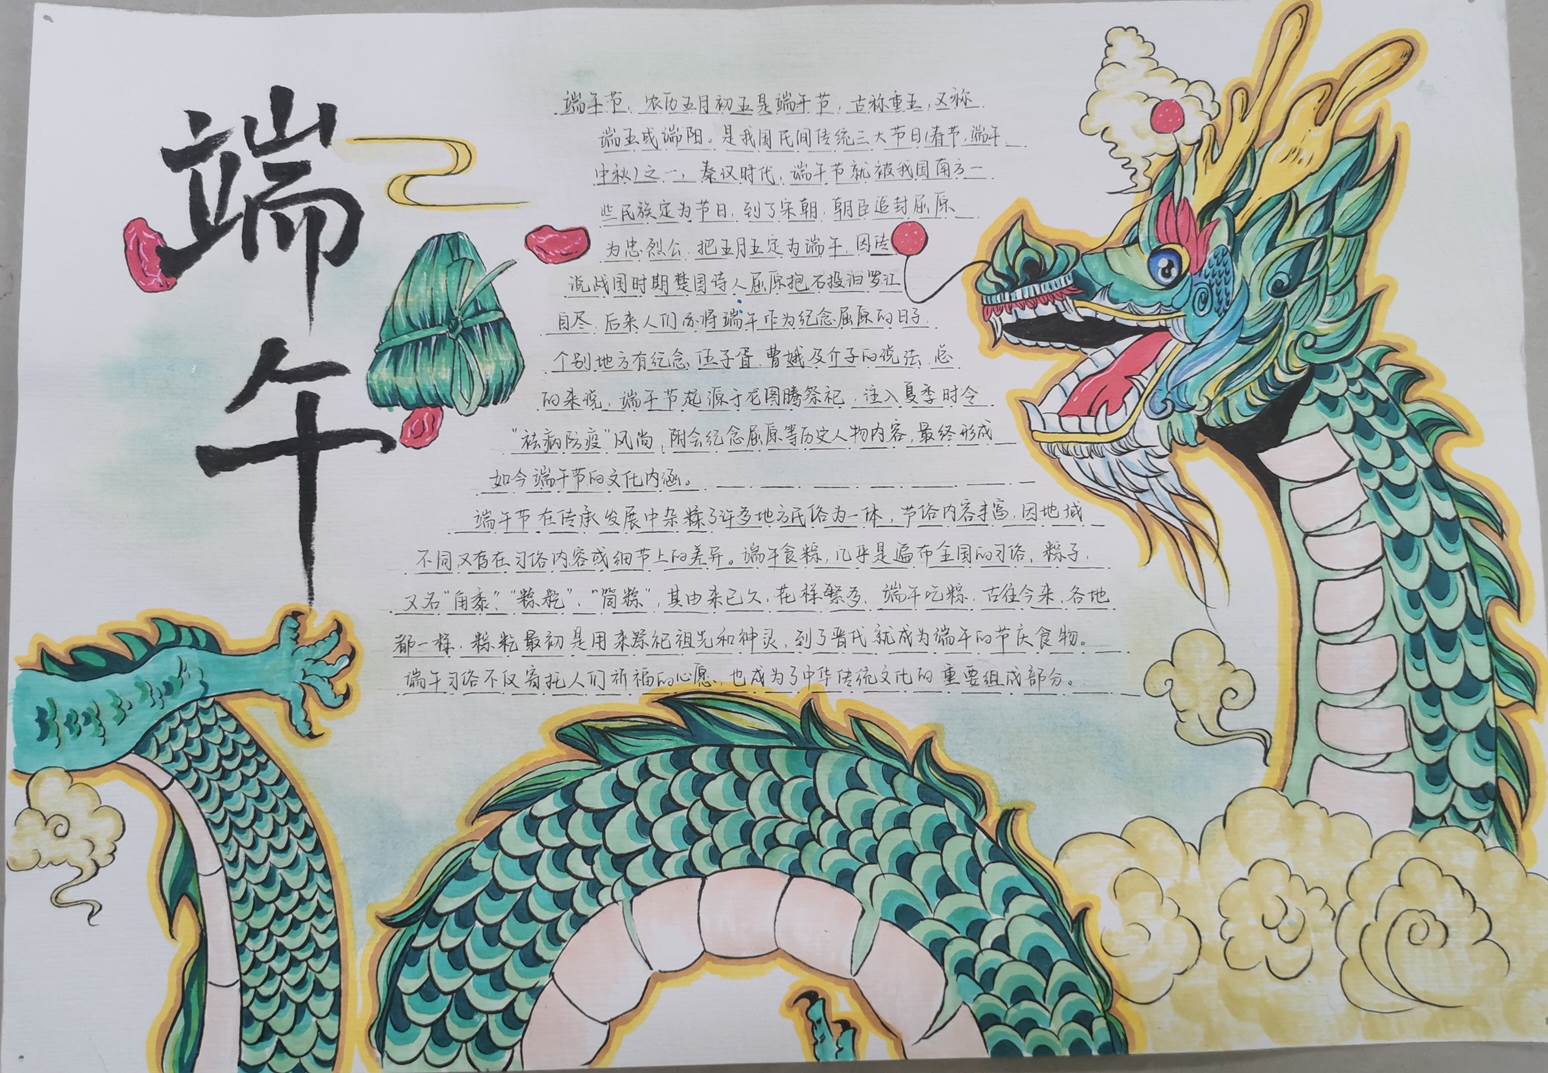 端午
端午节，农历五月初五是端午节，古称重五，又称
端五或端阳。是我国民间传统三大节日(春节,端午
中秋)之一，秦汉时代，端午节就被我国南方一
些民族定为节日，到了宋朝，朝臣追封屈原
为忠烈公，把五月五定为端午，因传
说战国时期楚国诗人屈原抱石投汨罗江
自尽，后来人们亦将端午作为纪念屈原的日子
个别地方有纪念伍子胥、曹娥及介子的说法，总
的来说，端午节起源于龙图腾祭祀，注入夏季时令
“祛病防疫”风尚，附会纪念屈原等历史人物内容，最终形成
如今端午节的文化内涵。
端午节在传承发展中杂糅了许多地方民俗为一体，节俗内容丰富，因地域
不同又存在习俗内容或细节上的差异。端午食粽，几乎是遍布全国的习俗，粽子，
又名“角黍”、“粽籺”、“筒粽”，其由来已久，花样繁多，端午吃粽，古往今来，各地
都一样，粽籺最初是用来祭祀祖先和神灵，到了晋代就成为端午的节庆食物。
端午习俗不仅寄托人们祈福的心愿，也成为了中华传统文化的重要组成部分。